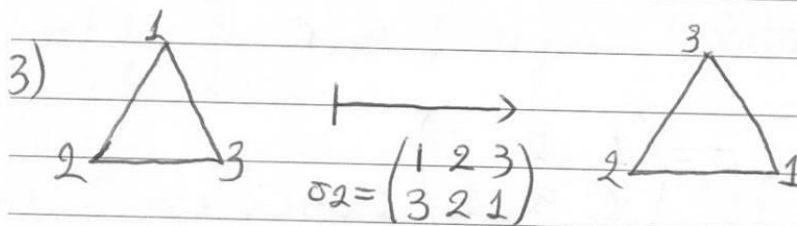 3)
1
2 3
σ2 = (1 2 3)
(3 2 1)
3
2 1